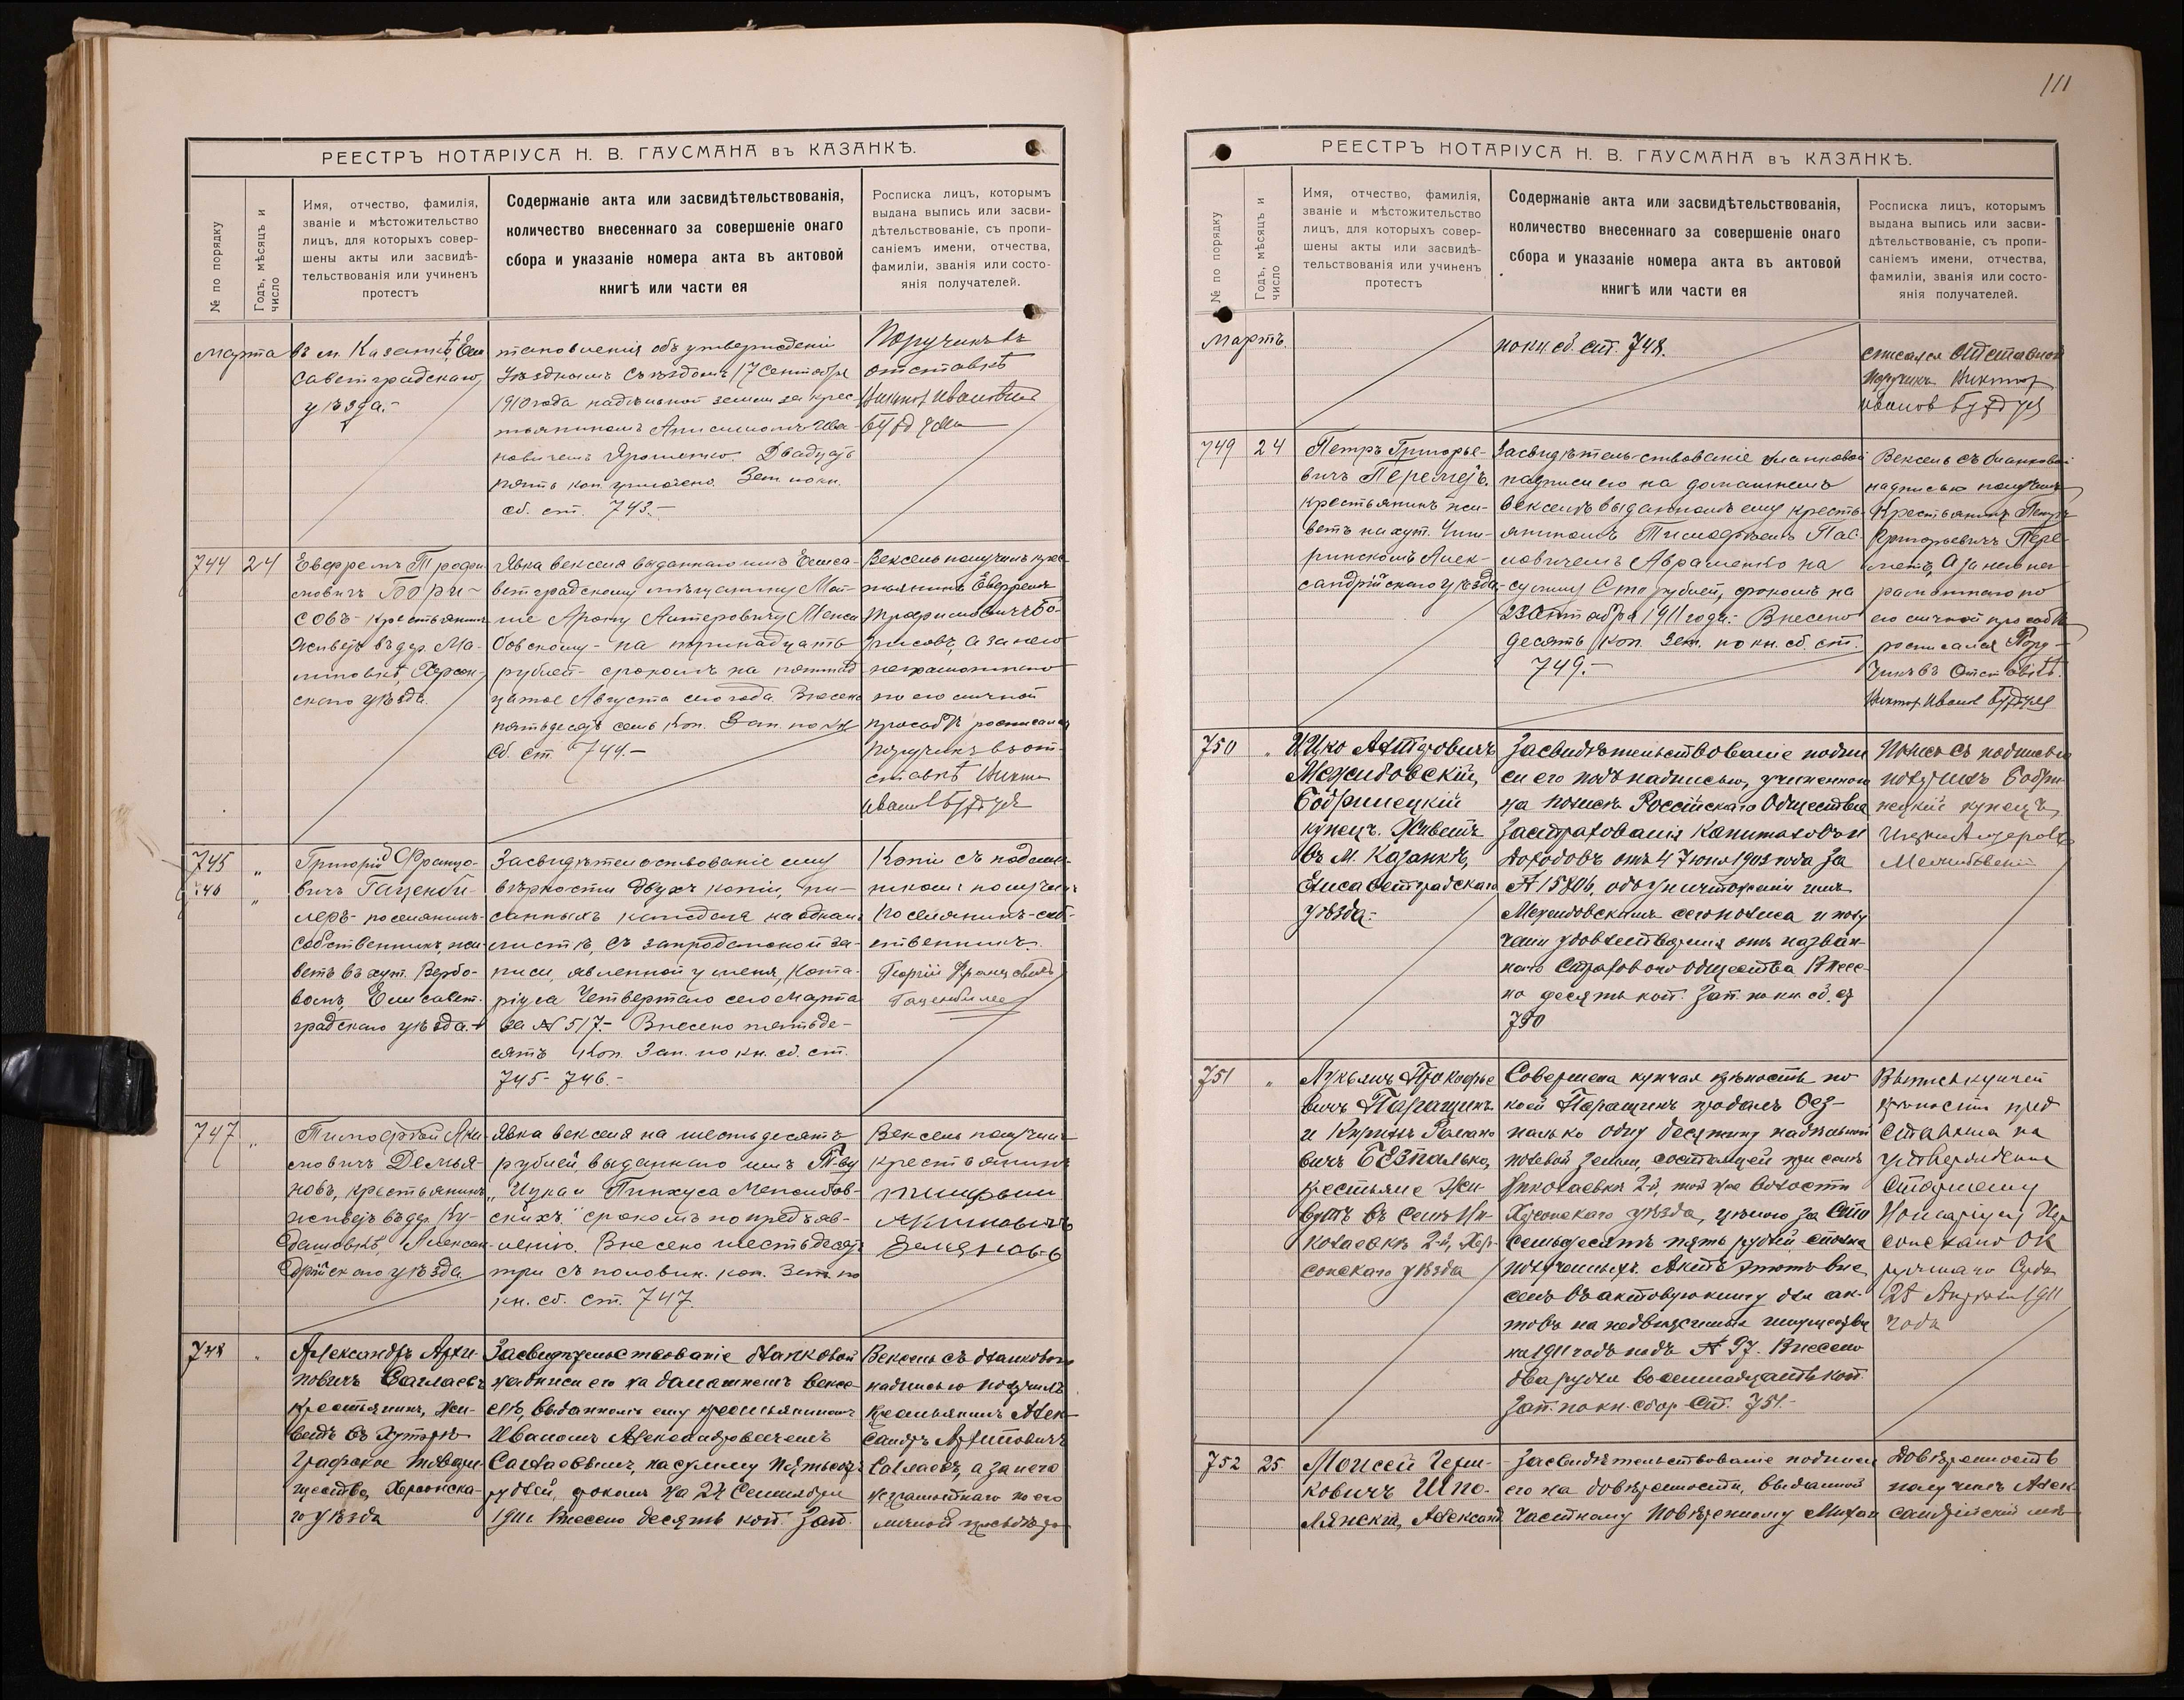 111
РЕЕСТРЪ НОТАРІУСА Н. В. ГАУСМАНА въ КАЗАНКѢ.
№ по порядку
Годъ, мѣсяцъ и
число
Имя, отчество, фамилія,
званіе и мѣстожительство
лицъ, для которыхъ совер-
шены акты или засвидѣ-
тельствованія или учиненъ
протестъ
Содержаніе акта или засвидѣтельствованія,
количество внесеннаго за совершеніе онаго
сбора и указаніе номера акта въ актовой
книгѣ или части ея
Росписка лицъ, которымъ
выдана выпись или засви-
дѣтельствованіе, съ пропи-
саніемъ имени, отчества,
фамиліи, званія или состо-
янія получателей.
Марта
въ м. Казанкѣ, Ели
саветградскаго
уѣзда.-
тановленія объ утвержденіи
Уѣзднымъ Съѣздомъ 17 Сентября
1910 года надѣльной земли за крес-
тьяниномъ Анисимомъ Ива-
новичемъ Ярошенко. Двадцать
пять коп. уплочено. Зап. по кн.
сб. ст. 743.-
Поручикъ въ
отставкѣ
744
24
Евфремъ Трофи
мовичъ Бори-
совъ- крестьянинъ
Живетъ въ дер. Ма-
линовкѣ, Херсон-
скаго уѣзда.
Явка векселя выданнаго имъ Елиса-
ветградскому мѣщанину Мот-
ле Арону Литеровичу Межи
бовскому- на тринадцать
рублей- срокомъ на пятнад
цатое Августа сего года. Внесено
пятьдесятъ семь коп. Зап. по кн
Сб. ст. 744.-
Вексель получилъ крес
тьянинъ Евфремъ
Трофимовичъ Бо-
рисовъ, а за него
неграмотнаго
по его личной
просьбѣ росписался
поручикъ въ от-
ставкѣ
745
746
"
"
Григорій Францо-
вичъ Гаценби-
леръ- поселянинъ-
собственникъ, жи-
ветъ въ хут. Вербо-
вомъ, Елисавет-
градскаго уѣзда.-
Засвидѣтельствованіе ему
вѣрности двухъ копій, пи-
санныхъ каждая на одномъ
листѣ, съ запродажной за-
писи, явленной у меня, Нота-
ріуса Четвертаго сего Марта
за № 517.- Внесено пятьде-
сятъ коп. Зап. по кн. сб. ст.
745- 746.-
Копіи съ подлин-
никомъ получилъ
поселянинъ-соб-
ственникъ.
747
"
Тимофей Аки-
мовичъ Демья-
новъ, крестьянинъ
живетъ въ др. Ку-
дашовкѣ, Алексан
дрійскаго уѣзда.
Явка векселя на шестьдесятъ
рублей, выданнаго имъ Т-ву
„Ицка и Пинхуса Межибов-
скихъ" срокомъ по предъяв-
ленію. Внесено шестьдесятъ
три съ половин. коп. Зап. по
кн. сб. ст. 747.
Вексель получилъ
крестьянинъ
Акимовичъ
748
"
Александръ Архи-
повичъ Саглаевъ
крестьянинъ, жи-
ветъ въ хуторѣ
Графское товари-
щество, Херсонска-
го уѣзда
Засвидѣтельствованіе бланковой
надписи его на домашнемъ вексе-
лѣ, выданномъ ему крестьяниномъ
Иваномъ Александровичемъ
Саглаевымъ, на сумму пятьсотъ
рублей, срокомъ на 24 Сентября
1911г. Внесено десять коп. Зап.
Вексель съ бланковою
надписью получилъ
крестьянинъ Алек-
сандръ Архиповичъ
Саглаевъ, а за него
неграмотнаго по его
личной просьбѣ ро
РЕЕСТРЪ НОТАРІУСА Н. В. ГАУСМАНА въ КАЗАНКѢ.
№ по порядку
Годъ, мѣсяцъ и
число
Имя, отчество, фамилія,
званіе и мѣстожительство
лицъ, для которыхъ совер-
шены акты или засвидѣ-
тельствованія или учиненъ
протестъ
Содержаніе акта или засвидѣтельствованія,
количество внесеннаго за совершеніе онаго
сбора и указаніе номера акта въ актовой
книгѣ или части ея
Росписка лицъ, которымъ
выдана выпись или засви-
дѣтельствованіе, съ пропи-
саніемъ имени, отчества,
фамиліи, званія или состо-
янія получателей.
Мартъ.
по кн сб. ст. 748.
списался отставной
поручикъ Виктор
Иванов
749
24
Петръ Григорье-
вичъ Перемет
крестьянинъ жи-
ветъ на хут.
Алек-
сандрійскаго уѣзда
Засвидѣтельствованіе бланковой
надписи его на домашнемъ
векселѣ выданномъ ему кресть-
яниномъ Тимофѣемъ Пав-
ловичемъ Авраменко на
сумму Сто рублей, срокомъ на
23 Октября 1911 года.- Внесено
десять коп. Зап. по кн. сб. ст.
749.-
Вексель съ бланковой
надписью получилъ
Крестьянинъ Петръ
Григорьевичъ Пере-
метъ, а за него не-
грамотнаго по
его личной просьбѣ
росписался Пору-
чикъ въ Отставкѣ.
Виктор Иванов
750
"
Ицко Лейзеровичъ
Межибовскій,
Бобринецкій
купецъ. Живетъ
въ м. Казанкѣ,
Елисаветградскаго
уѣзда.-
Засвидѣтельствованіе подпи
си его подъ надписью, учиненною
на полисѣ Россійскаго Общества
Застрахованія Капиталовъ и
доходовъ отъ 4 Іюня 1902 года за
№ 15806, объ уничтоженіи имъ
Межибовскимъ сего полиса и полу
ченіи удовлетворенія отъ назван-
наго Страхового Общества Внесе-
но десять коп. Зап. по кн. сб. ст
750
Полисъ съ подписью
получилъ Бобри-
нецкій купецъ
751
"
Лукьянъ Прокофье
вичъ Паращикъ
и Романо
вичъ Безпалько,
крестьяне жи-
вутъ въ селѣ Ни-
колаевкѣ 2-й, Хер-
сонскаго уѣзда
Совершена купчая крѣпость по
коей Паращикъ продалъ Без-
палько одну десятину надѣльной
полевой земли, состоящей при селѣ
Николаевкѣ 2-й, той же волости
Херсонскаго уѣзда, цѣною за Сто
семьдесятъ пять рублей, сполна
полученныхъ. Актъ этотъ вне
сенъ въ актовую книгу для ак-
товъ на недвижимыя имущества
на 1911 годъ подъ № 97. Внесено
два рубля восемнадцать коп.
Зап. по кн. сбор. ст. 751.-
Выпись купчей
крѣпости пред
ставлена на
утвержденіе
Старшему
Нотаріусу Хер
сонскаго Ок
ружнаго Суда
1911
года
752
25
Моисей Герш-
ковичъ Шпо-
лянскій, Александ
- Засвидѣтельствованіе подписи
его на довѣренности, выданной
частному повѣренному Михаи
Довѣренность
получилъ Алек
сандрійскій мѣ